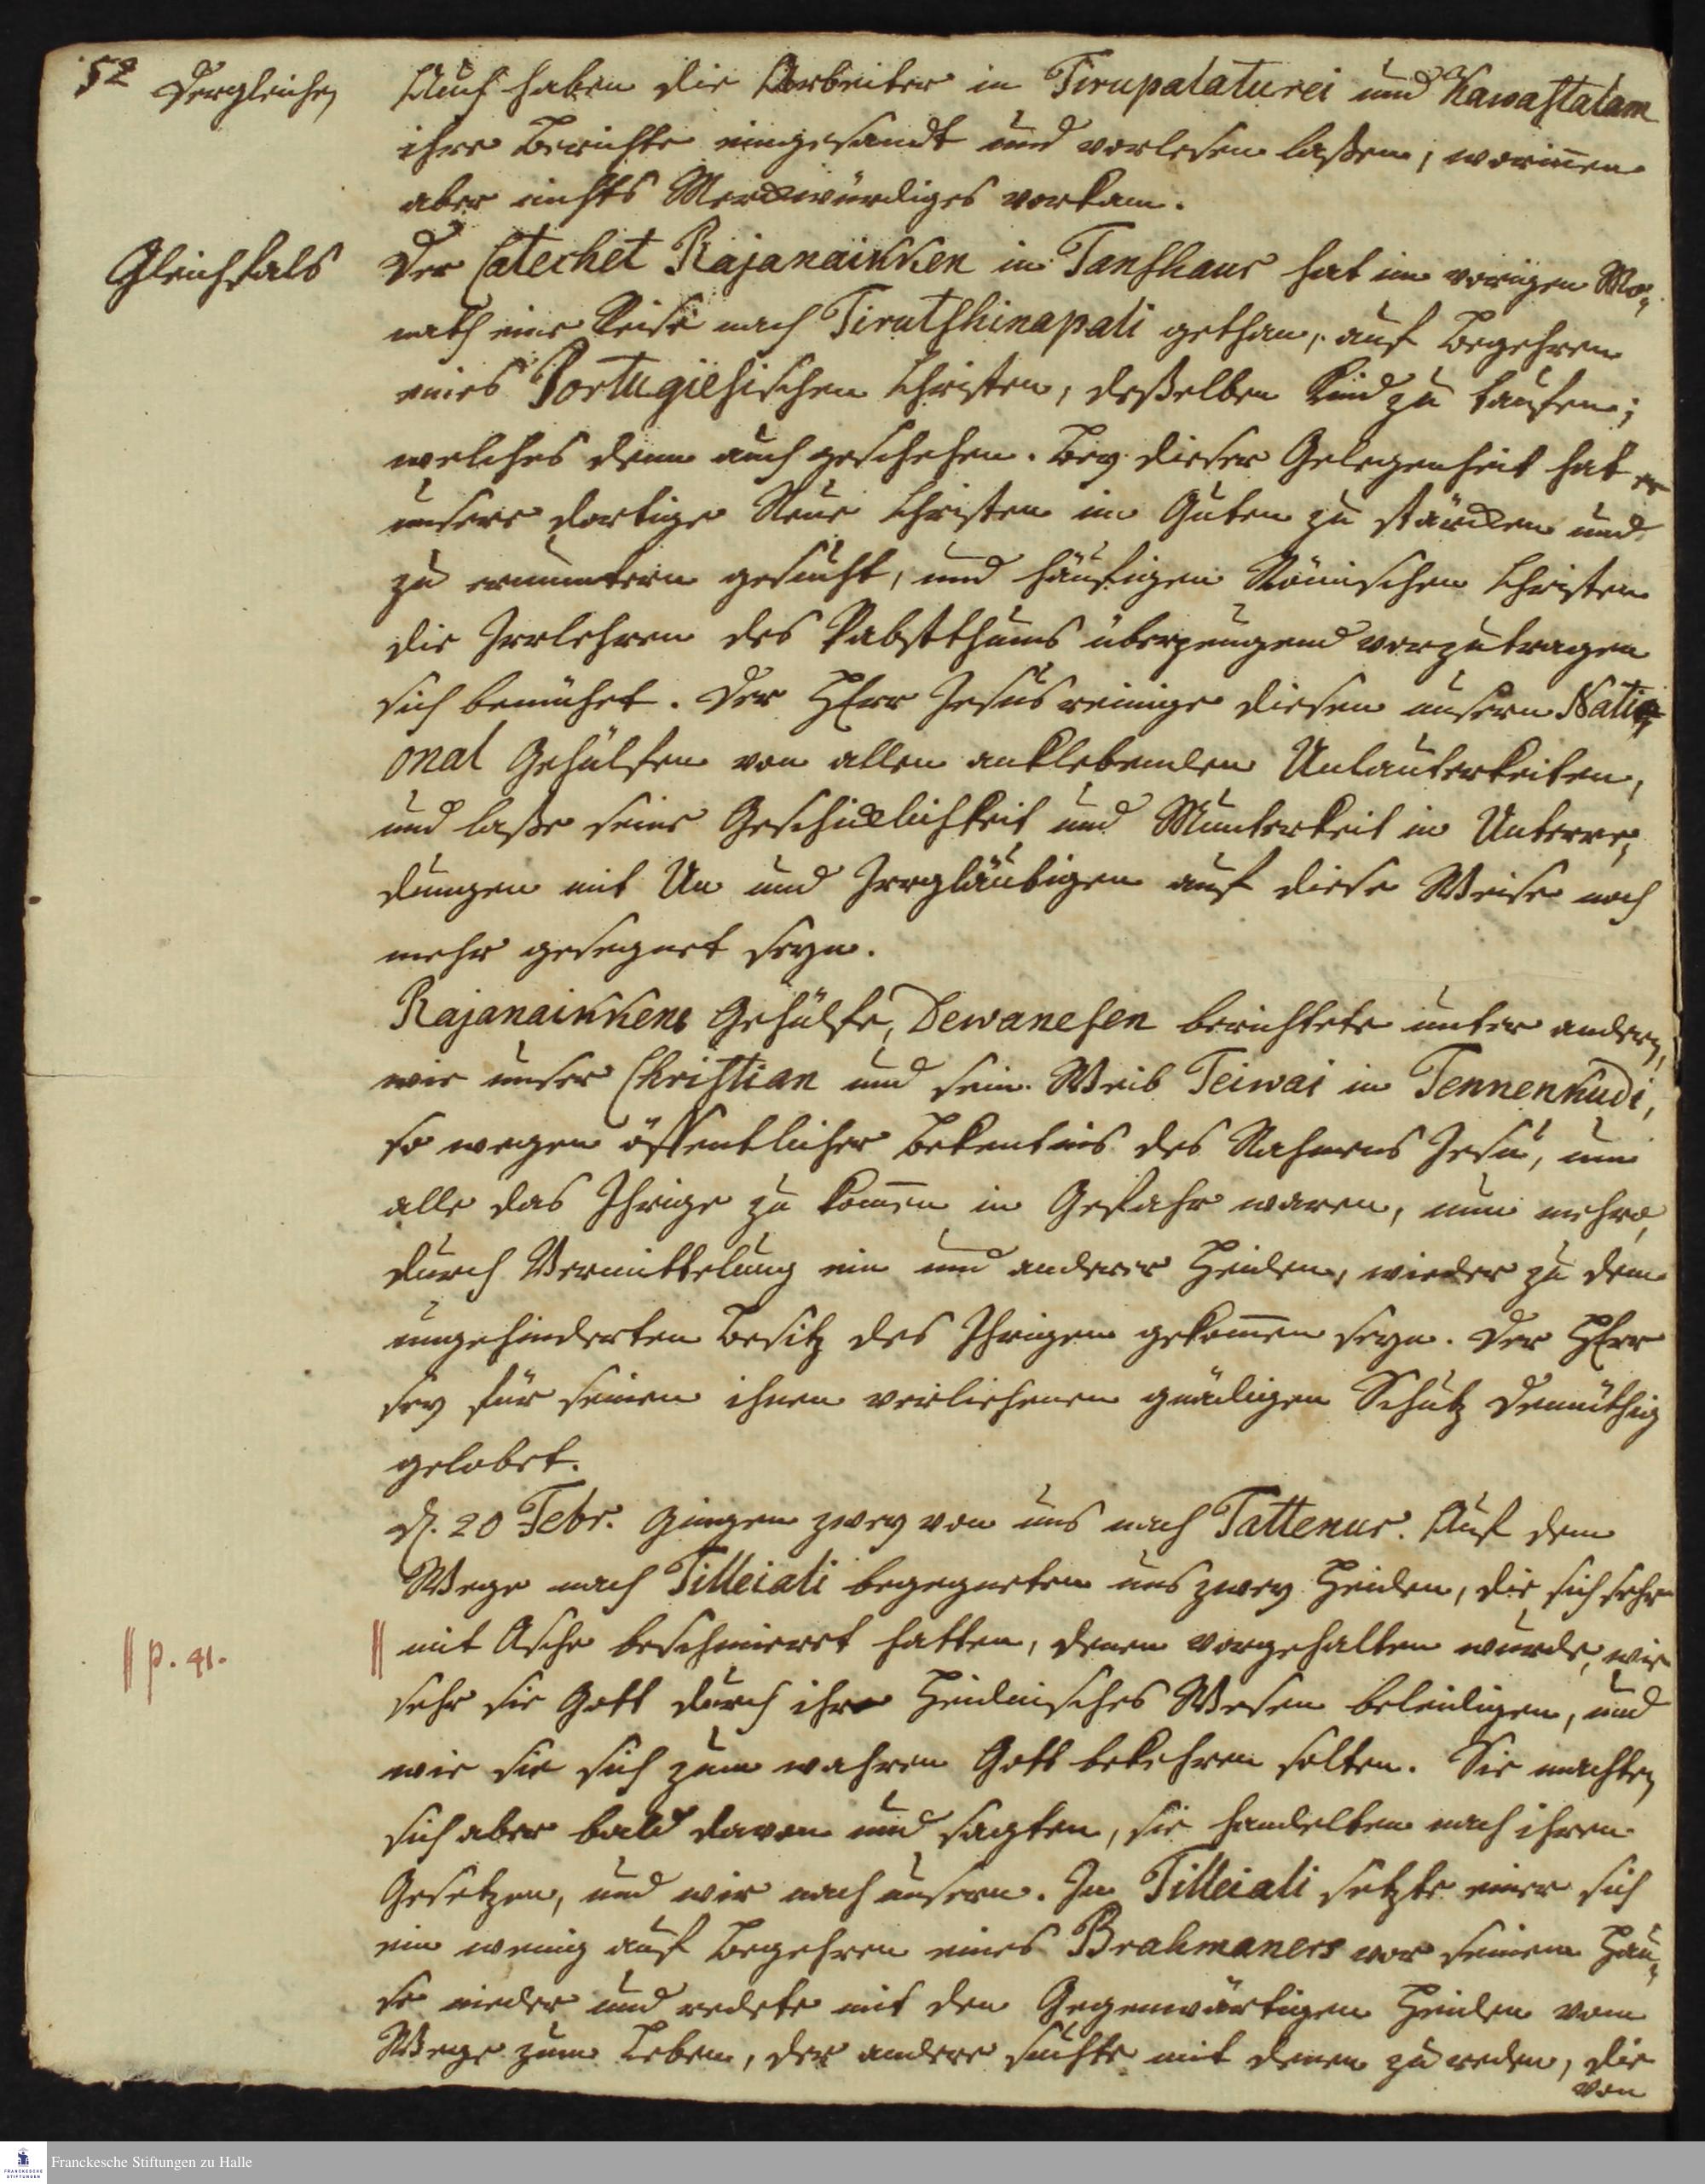 52
Dergleichen
Auch haben die Arbeiter in Tirupalaturei und Kawastalam
ihre Berichte eingesandt und vorlesen laßen, worin̄en
aber nichts Merckwürdiges vorkam.
Gleichfals
Der Catechet Rajanaikken in Tanshaur hat im vorigen Mo-
nath eine Reise nach Tirutshinapali gethan, auf Begehren
eines Portugiesischen Christen, deßelben Kind zu taufen;
welches denn auch geschehen. Bey dieser Gelegenheit hat er
unsere dortige Neue Christen im Guten zu stärcken und
zu ermuntern gesucht, und häufigen Römischen Christen
die Irrlehren des Pabstthums überzeugend vorzutragen
sich bemühet. Der HErr Jesus reinige diesen unsern Nati-
onal Gehülfen von allen anklebenden Unlauterkeiten,
und laße seine Geschicklichkeit und Munterkeit in Unterre-
dungen mit Un und Irrgläubigen auf diese Weise noch
mehr gesegnet seyn.
Rajanaikkens Gehülfe, Dewanesen berichtete unter andern,
wie unser Christian und sein Weib Teiwai in Tennenkudi,
so wegen öffentlicher Bekentnis des Nahmens Jesu, um
alle das Ihrige zu kom̄en in Gefahr waren, nun mehro,
durch Vermittelung ein und anderer Heiden, wieder zu dem
ungehinderten Besitz des Ihrigen gekom̄en seyn. Der HErr
sey für seinen ihnen verliehenen gnädigen Schutz demüthig
gelobet.
d. 20 Febr. gingen zwey von uns nach Tattenur. Auf dem
Wege nach Tilleiali begegneten uns zwey Heiden, die sich sehr
|| p. 41.
|| mit Asche beschmieret hatten, denen vorgehalten wurde, wie
sehr sie Gott durch ihr Heidnisches Wesen beleidigen, und
wie sie sich zum wahren Gott bekehren solten. Sie machten
sich aber bald davon und sagten, sie handelten nach ihren
Gesetzen, und wir nach unsern. In Tilleiali setzte einer sich
ein wenig auf Begehren eines Brahmaners vor seinem Hau-
se nieder und redete mit den Gegenwärtigen Heiden vom
Wege zum Leben, der andere suchte mit denen zu reden, die
von
Franckesche Stiftungen zu Halle